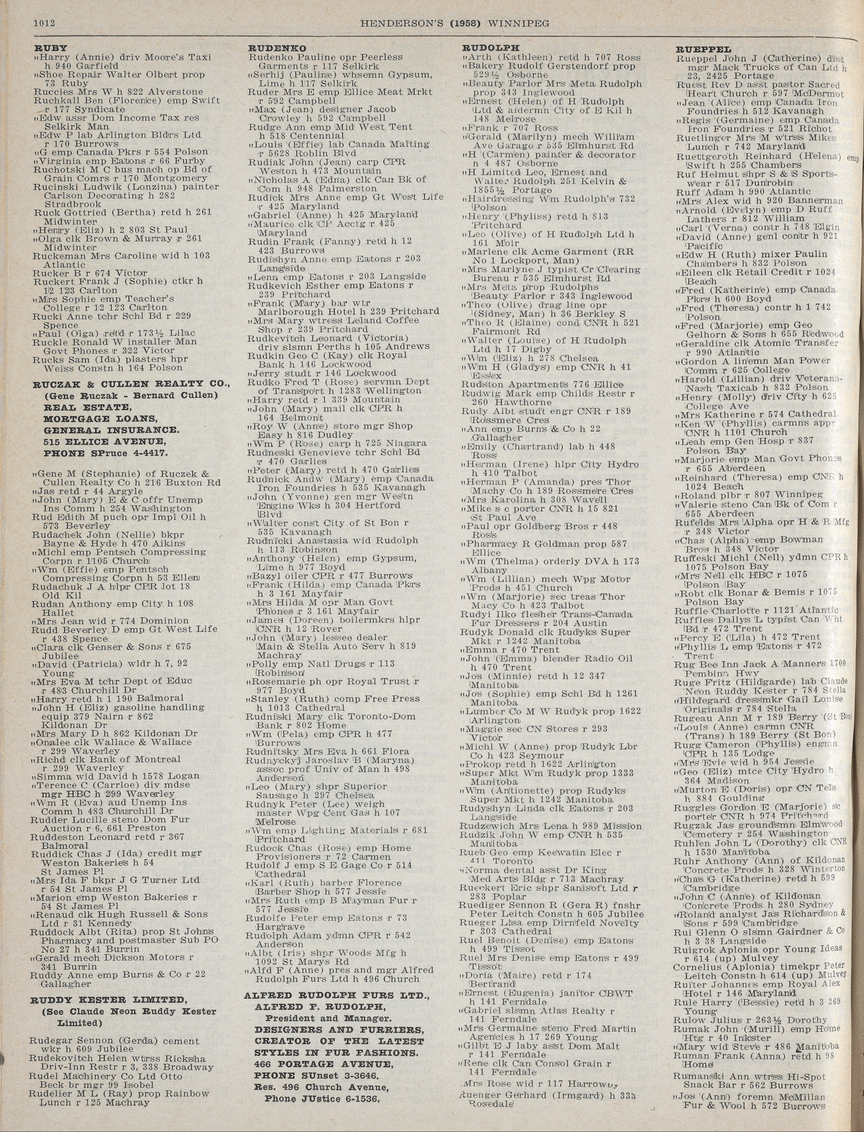 1012
HENDERSON'S (1958) WINNIPEG
RUBY
„Harry (Annie) driv Moore's Taxi
h 940 Garfield
„Shoe Repair Walter Olbert prop
73 Ruby
Rucies Mrs W h 822 Alverstone
Ruchkall Ben (Florence) emp Swift
r 177 Syndicate
„Edw assr Dom Income Tax res
Selkirk Man
„Edw P lab Arlington Bldrs Ltd
r 170 Burrows
„G emp Canada Pkrs r 554 Polson
„Virginia emp Eatons r 66 Furby
Ruchotski M C bus mach op Bd of
Grain Comrs r 170 Montgomery
Rucinski Ludwik (Lonzina) painter
Carlson Decorating h 282
Stradbrook
Ruck Gottried (Bertha) retd h 261
Midwinter
„Henry (Eliz) h 2 803 St Paul
„Olga clk Brown & Murray r 261
Midwinter
Ruckeman Mrs Caroline wid h 103
Atlantic
Rucker B r 674 Victor
Ruckert Frank J (Sophie) ctkr h
12 123 Carlton
„Mrs Sophie emp Teacher's
College r 12 123 Carlton
Rucki Anne tchr Schl Bd r 229
Spence
„Paul (Olga) retd r 173½ Lilac
Ruckle Ronald W installer Man
Govt Phones r 322 Victor
Rucks Sam (Ida) plasters hpr
Weiss Constn h 164 Polson
RUCZAK & CULLEN REALTY CO.,
(Gene Ruczak - Bernard Cullen)
REAL ESTATE,
MORTGAGE LOANS,
GENERAL INSURANCE.
515 ELLICE AVENUE,
PHONE SPruce 4-4417.
„Gene M (Stephanie) of Ruczek &
Cullen Realty Co h 216 Buxton Rd
„Jas retd r 44 Argyle
„John (Mary) E & C offr Unemp
Ins Comm h 254 Washington
Rud Edith M puch opr Impl Oil h
573 Beverley
Rudachek John (Nellie) bkpr
Bayne & Hyde h 470 Aikins
„Michl emp Pentsch Compressing
Corpn r 1105 Church
„Wm (Effie) emp Pentsch
Compressing Corpn h 53 Ellen
Rudachuk J A hlpr CPR lot 18
Old Kil
Rudan Anthony emp City h 108
Hallet
„Mrs Jean wid r 774 Dominion
Rudd Beverley D emp Gt West Life
r 438 Spence
„Clara clk Genser & Sons r 675
Jubilee
„David (Patricia) wldr h 7, 92
Young
„Mrs Eva M tchr Dept of Educ
r 483 Churchill Dr
„Harry retd h 1 190 Balmoral
„John H (Eliz) gasoline handling
equip 379 Nairn r 862
Kildonan Dr
„Mrs Mary D h 862 Kildonan Dr
„Onalee clk Wallace & Wallace
r 299 Waverley
„Richd clk Bank of Montreal
r 299 Waverley
„Simma wid David h 1578 Logan
„Terence C (Carrloe) div mdse
mgr HBC h 299 Waverley
„Wm R (Eva) aud Unemp Ins
Comm h 483 Churchill Dr
Rudder Lucille steno Dom Fur
Auction r 6, 661 Preston
Ruddeston Leonard retd r 367
Balmoral
Ruddick Chas J (Ida) credit mgr
Weston Bakeries h 54
St James Pl
„Mrs Ida F bkpr J G Turner Ltd
r 54 St James Pl
„Marion emp Weston Bakeries r
54 St James Pl
„Renaud clk Hugh Russell & Sons
Ltd r 31 Kennedy
Ruddock Albt (Rita) prop St Johns
Pharmacy and postmaster Sub PO
No 27 h 341 Burrin
„Gerald mech Dickson Motors r
341 Burrin
Ruddy Anne emp Burns & Co r 22
Gallagher
RUDDY KESTER LIMITED,
(See Claude Neon Ruddy Kester
Limited)
Rudegar Sennon (Gerda) cement
wkr h 609 Jubilee
Rudekovitch Helen wtrss Ricksha
Driv-Inn Restr r 3, 338 Broadway
Rudel Machinery Co Ltd Otto
Beck br mgr 99 Isobel
Rudelier M L (Ray) prop Rainbow
Lunch r 125 Machray
RUDENKO
Rudenko Pauline opr Peerless
Garments r 117 Selkirk
„Serhij (Pauline) whsemn Gypsum,
Lime h 117 Selkirk
Ruder Mrs E emp Ellice Meat Mrkt
r 592 Campbell
„Max (Jean) designer Jacob
Crowley h 592 Campbell
Rudge Ann emp Mid West Tent
h 518 Centennial
„Louis (Effie) lab Canada Malting
r 5628 Roblin Blvd
Rudiak John (Jean) carp CPR
Weston h 473 Mountain
„Nicholas A (Edna) clk Can Bk of
Com h 948 Palmerston
Rudick Mrs Anne emp Gt West Life
r 425 Maryland
„Gabriel (Anne) h 425 Maryland
„Maurice clk CP Acctg r 425
Maryland
Rudin Frank (Fanny) retd h 12
423 Burrows
Rudishyn Anno emp Eatons r 203
Langside
„Lena emp Eatons r 203 Langside
Rudkevich Esther emp Eatons r
239 Pritchard
„Frank (Mary) bar wtr
Marlborough Hotel h 239 Pritchard
„Mrs Mary wtress Leland Coffee
Shop r 239 Pritchard
Rudkevitch Leonard (Victoria)
driv slsmn Perths h 105 Andrews
Rudkin Geo C (Kay) clk Royal
Bank h 146 Lockwood
„Jerry studt r 146 Lockwood
Rudko Fred T (Rose) servmn Dept
of Transport h 1283 Wellington
„Harry retd r 1 339 Mountain
„John (Mary) mail clk CPR h
164 Belmont
„Roy W (Anne) store mgr Shop
Easy h 816 Dudley
„Wm P (Rose) carp h 725 Niagara
Rudneski Genevieve tchr Schl Bd
r 470 Garlies
„Peter (Mary) retd h 470 Garlies
Rudnick Andw (Mary) emp Canada
Iron Foundries h 535 Kavanagh
„John (Yvonne) gen mgr Westn
Engine Wks h 304 Hertford
Blvd
„Walter const City of St Bon r
535 Kavanagh
Rudnicki Anastasia wid Rudolph
h 113 Robinson
„Anthony (Helen) emp Gypsum,
Lime h 977 Boyd
„Bazyl oiler CPR r 477 Burrows
„Frank (Hilda) emp Canada Pkrs
h 3 161 Mayfair
„Mrs Hilda M opr Man Govt
Phones r 3 161 Mayfair
„James (Doreen) boilermkrs hlpr
CNR h 12 Rover
„John (Mary) lessee dealer
Main & Stella Auto Serv h 819
Machray
„Polly emp Natl Drugs r 113
Robinson
„Rosemarie ph opr Royal Trust r
977 Boyd
„Stanley (Ruth) comp Free Press
h 1013 Cathedral
Rudniski Mary clk Toronto-Dom
Bank r 802 Home
„Wm (Pela) emp CPR h 477
Burrows
Rudnitsky Mrs Eva h 661 Flora
Rudnyckyj Jaroslav B (Maryna)
assoc prof Univ of Man h 498
Anderson
„Leo (Mary) shpr Superior
Sausage h 297 Chelsea
Rudnyk Peter (Lee) weigh
master Wpg Cent Gas h 107
Melrose
„Wm emp Lighting Materials r 681
Pritchard
Rudock Chas (Rose) emp Home
Provisioners r 72 Carmen
Rudolf J emp S E Gage Co r 514
Cathedral
„Karl (Ruth) barber Florence
Barber Shop h 577 Jessie
„Mrs Ruth emp B Mayman Fur r
577 Jessie
Rudolfe Peter emp Eatons r 73
Hargrave
Rudolph Adam ydmn CPR r 542
Anderson
„Albt (Iris) shpr Woods Mfg h
1092 St Marys Rd
„Alfd F (Anne) pres and mgr Alfred
Rudolph Furs Ltd h 496 Church
ALFRED RUDOLPH FURS LTD.,
ALFRED F. RUDOLPH,
President and Manager.
DESIGNERS AND FURRIERS,
CREATOR OF THE LATEST
STYLES IN FUR FASHIONS.
466 PORTAGE AVENUE,
PHONE SUnset 3-3646.
Res. 496 Church Avenue,
Phone JUstice 6-1536.
RUDOLPH
„Arth (Kathleen) retd h 707 Ross
„Bakery Rudolf Gerstendorf prop
529½ Osborne
„Beauty Parlor Mrs Meta Rudolph
prop 343 Inglewood
„Ernest (Helen) of H Rudolph
Ltd & aldermn City of E Kil h
148 Melrose
„Frank r 707 Ross
„Gerald (Marilyn) mech William
Ave Garage r 535 Elmhurst Rd
„H (Carmen) painter & decorator
h 487 Osborne
„H Limited Leo, Ernest and
Walter Rudolph 251 Kelvin &
1855½ Portage
„Hairdressing Wm Rudolph's 732
Polson
„Henry (Phyliss) retd h 813
Pritchard
„Leo (Olive) of H Rudolph Ltd h
161 Moir
„Marlene clk Acme Garment (RR
No 1 Lockport, Man)
„Mrs Marlyne J typist Cr Clearing
Bureau r 535 Elmhurst Rd
„Mrs Meta prop Rudolphs
Beauty Parlor r 343 Inglewood
„Theo (Olive) drag line opr
(Sidney, Man) h 36 Berkley S
„Theo R (Elaine) cond CNR h 521
Fairmont Rd
„Walter (Louise) of H Rudolph
Ltd h 17 Digby
„Wm (Eliz) h 278 Chelsea
„Wm H (Gladys) emp CNR h 41
Essex
Rudston Apartments 776 Ellice
Rudwig Mark emp Childs Restr r
260 Hawthorne
Rudy Albt studt engr CNR r 189
Rossmere Cres
„Ann emp Burns & Co h 22
Gallagher
„Emily (Chartrand) lab h 448
Ross
„Herman (Irene) hlpr City Hydro
h 410 Talbot
„Herman P (Amanda) pres Thor
Machy Co h 189 Rossmere Cres
„Mrs Karolina h 308 Wavell
„Mike s c porter CNR h 15 821
St Paul Ave
„Paul opr Goldberg Bros r 448
Ross
„Pharmacy R Goldman prop 587
Ellice
„Wm (Thelma) orderly DVA h 173
Albany
„Wm (Lillian) mech Wpg Motor
Prods h 451 Church
„Wm (Marjorie) sec treas Thor
Macy Co h 423 Talbot
Rudyi Ilko flesher Trans-Canada
Fur Dressers r 204 Austin
Rudyk Donald clk Rudyks Super
Mkt r 1242 Manitoba
„Emma r 470 Trent
„John (Emma) blender Radio Oil
h 470 Trent
„Jos (Minnie) retd h 12 347
Manitoba
„Jos (Sophie) emp Schl Bd h 1261
Manitoba
„Lumber Co M W Rudyk prop 1622
Arlington
„Maggie sec CN Stores r 293
Victor
„Michl W (Anne) prop Rudyk Lbr
Co h 423 Seymour
„Prokop retd h 1622 Arlington
„Super Mkt Wm Rudyk prop 1333
Manitoba
„Wm (Antionette) prop Rudyks
Super Mkt h 1242 Manitoba
Rudyshyn Linda clk Eatons r 203
Langside
Rudzewich Mrs Lena h 989 Mission
Rudzik John W emp CNR h 535
Manitoba
Rueb Geo emp Keewatin Elec r
411 Toronto
„Norma dental asst Dr King
Med Arts Bldg r 713 Machray
Rueckert Eric shpr Sanisoft Ltd r
283 Poplar
Ruediger Sennon R (Gera R) fnshr
Peter Leitch Constn h 605 Jubilee
Rueger Lisa emp Dirnfeld Novelty
r 303 Cathedral
Ruel Benoit (Denise) emp Eatons
h 499 Tissot
Ruel Mrs Denise emp Eatons r 499
Tissot
„Doria (Maire) retd r 174
Bertrand
„Ernest (Eugenia) janitor CBWT
h 141 Ferndale
„Gabriel slsmn Atlas Realty r
141 Ferndale
„Mrs Germaine steno Fred Martin
Agencies h 17 269 Young
„Gilbt E J laby asst Dom Malt
r 141 Ferndale
„Rene clk Can Consol Grain r
141 Ferndale
„Mrs Rose wid r 117 Harrowby
Ruenger Gerhard (Irmgard) h 333
Rosedale
RUEPPEL
Rueppel John J (Catherine) dist
mgr Mack Trucks of Can Ltd h
23, 2425 Portage
Ruest Rev D asst pastor Sacred
Heart Church r 597 McDermot
„Jean (Alice) emp Canada Iron
Foundries h 512 Kavanagh
„Regis (Germaine) emp Canada
Iron Foundries r 521 Richot
Ruetlinger Mrs M wtrss Mikes
Lunch r 742 Maryland
Ruettgeroth Reinhard (Helena) emp
Swift h 255 Chambers
Ruf Helmut shpr S & S Sports-
wear r 517 Dunrobin
Ruff Adam h 990 Atlantic
„Mrs Alex wid h 920 Bannerman
„Arnold (Evelyn) emp D Ruff
Lathers r 812 William
„Carl (Verna) contr h 748 Elgin
„David (Anne) genl contr h 921
Pacific
„Edw H (Ruth) mixer Paulin
Chambers h 832 Polson
„Eileen clk Retail Credit r 1024
Beach
„Fred (Katherine) emp Canada
Pkrs h 600 Boyd
„Fred (Theresa) contr h 1 742
Polson
„Fred (Marjorie) emp Geo
Gelhorn & Sons h 655 Redwood
„Geraldine clk Atomic Transfer
r 990 Atlantic
„Gordon A linemn Man Power
Comm r 625 College
„Harold (Lillian) driv Veterans-
Nash Taxicab h 832 Polson
„Henry (Molly) driv City h 625
College Ave
„Mrs Katherine r 574 Cathedral
„Ken W (Phyllis) carmns appr
CNR h 1101 Church
„Leah emp Gen Hosp r 837
Polson Bay
„Marjorie emp Man Govt Phones
r 655 Aberdeen
„Reinhard (Theresa) emp CNR h
1024 Beach
„Roland plbr r 807 Winnipeg
„Valerie steno Can Bk of Com r
655 Aberdeen
Rufelds Mrs Alpha opr H & R Mfg
r 348 Victor
„Chas (Alpha) emp Bowman
Bros h 348 Victor
Ruffeski Michl (Nell) ydmn CPR h
1075 Polson Bay
„Mrs Nell clk HBC r 1075
Polson Bay
„Robt clk Bonar & Bemis r 1075
Polson Bay
Ruffle Charlotte r 1121 Atlantic
Ruffles Dallys L typist Can Wht
Bd r 472 Trent
„Percy E (Lila) h 472 Trent
„Phyllis L emp Eatons r 472
Trent
Rug Bee Inn Jack A Manners 1700
Pembina Hwy
Ruge Fritz (Hildgarde) lab Claude
Neon Ruddy Kester r 784 Stella
„Hildegard dressmkr Gail Louise
Originals r 784 Stella
Rugeau Ann M r 189 Berry (St Bon)
„Louis (Anne) carmn CNR
(Trans) h 189 Berry (St Bon)
Rugg Cameron (Phyllis) engmn
CPR h 135 Lodge
„Mrs Evie wid h 954 Jessie
„Geo (Eliz) mtce City Hydro h
364 Madison
„Murton E (Doris) opr CN Tels
h 884 Goulding
Ruggles Gordon E (Marjorie) sc
porter CNR h 974 Pritchard
Rugzak Jas groundsmn Elmwood
Cemetery r 254 Washington
Ruhlen John L (Dorothy) clk CNR
h 1530 Manitoba
Ruhr Anthony (Ann) of Kildonan
Concrete Prods h 328 Winterton
„Chas G (Katherine) retd h 599
Cambridge
„John C (Anne) of Kildonan
Concrete Prods h 280 Sydney
„Roland analyst Jas Richardson &
Sons r 599 Cambridge
Rui Glenn O slsmn Gairdner & Co
h 3 38 Langside
Ruigrok Aplonia opr Young Ideas
r 614 (up) Mulvey
Cornelius (Aplonia) timekpr Peter
Leitch Constn h 614 (up) Mulvey
Ruiter Johannes emp Royal Alex
Hotel r 146 Maryland
Rule Harry (Bessie) retd h 3 269
Young
Rulow Julius r 263½ Dorothy
Rumak John (Murill) emp Home
Htg r 40 Inkster
„Mary wid Steve r 486 Manitoba
Ruman Frank (Anna) retd h 98
Home
Rumanski Ann wtrss Hi-Spot
Snack Bar r 562 Burrows
„Jos (Ann) foremn McMillan
Fur & Wool h 572 Burrows